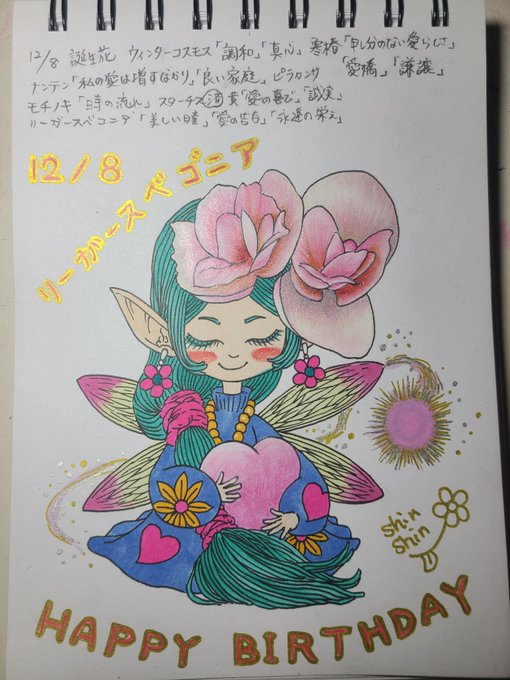 12/8 誕生花 ウィンターコスモス「調和」「真心」 寒椿「申し分のない愛らしさ」
「愛嬌」「謙譲」
ナンテン「私の愛は増すばかり」「良い家庭」 ピラカンサ
モチノキ「時の流れ」 スターチス 黄「愛の喜び」「誠実」
リーガースベコニア「美しい瞳」「愛の告白」「永遠の栄え」
12/8
リーガースベゴニア
shin
shin
HAPPY BIRTHDAY